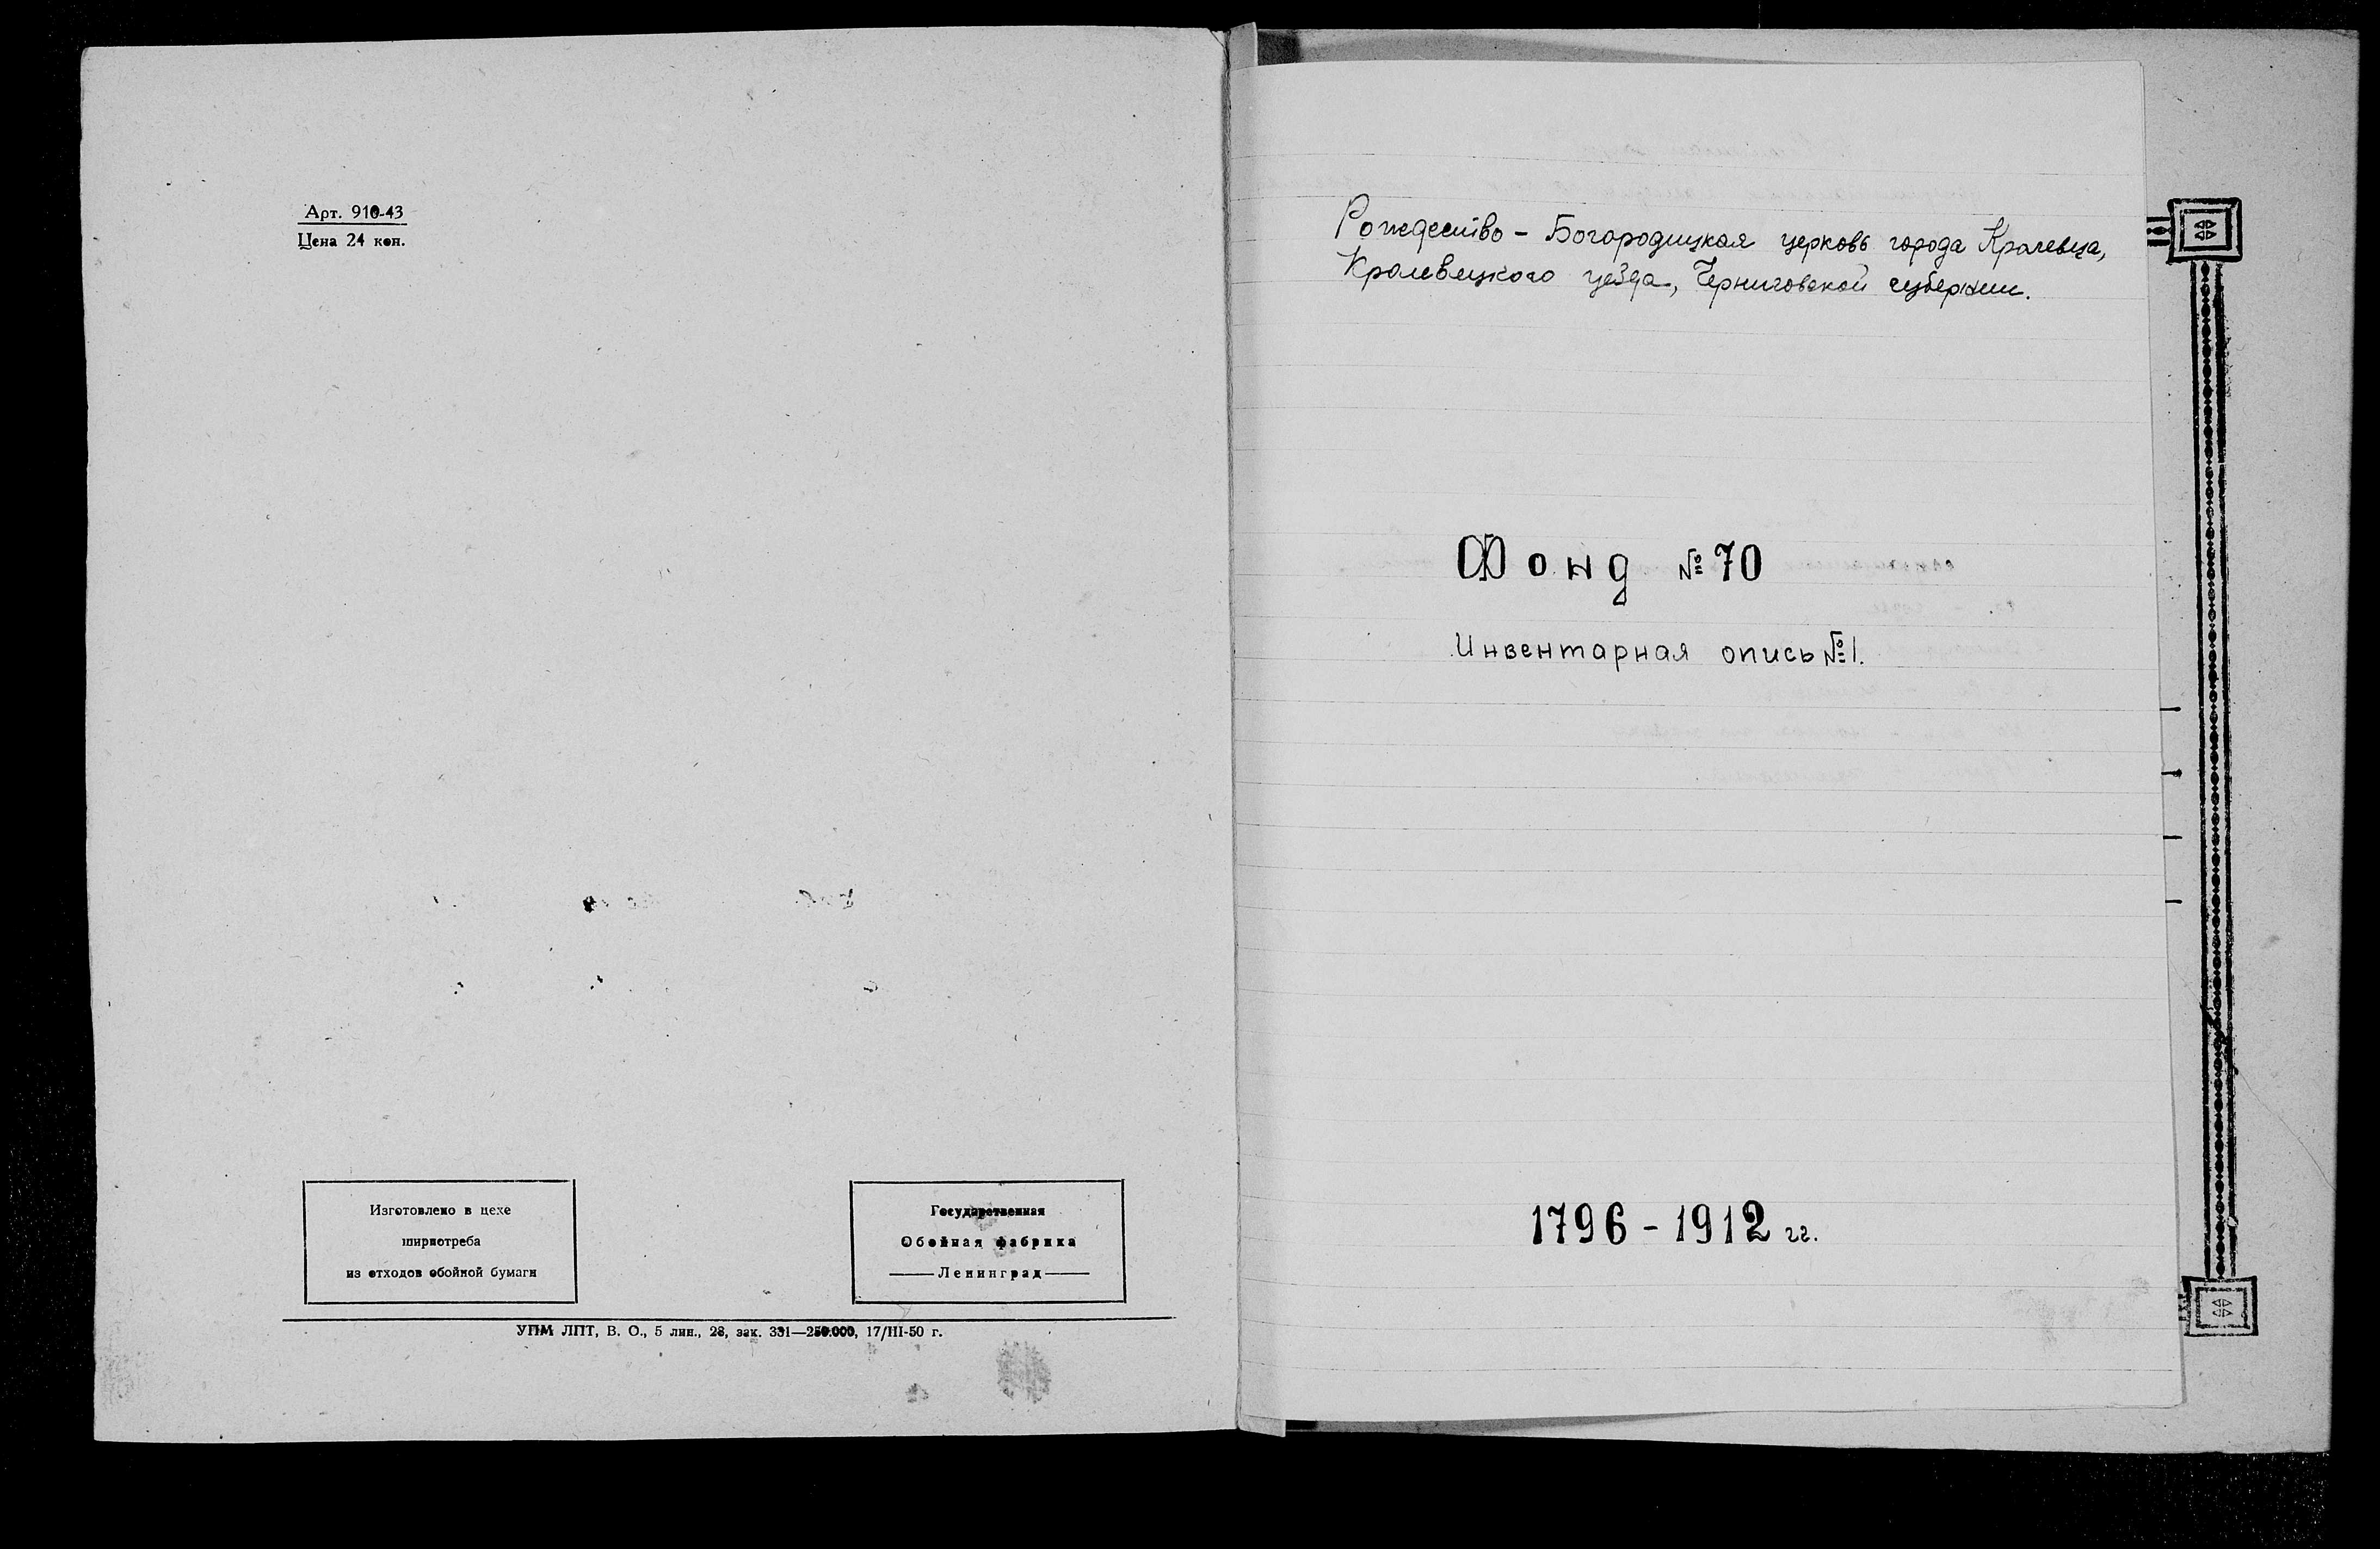 Арт. 910-43
Цена 24 коп.
Изготовлено в цехе
ширпотреба
из отходов обойной бумаги
Государственная
Обойная фабрика
Ленинград
УПМ ЛПТ, В. О., 5 лин., 28, зак. 331—250.000, 17/III-50 г.
Рождество - Богородицкая церковь города Кролевца,
Кролевецкого уезда, Черниговской губернии.
Фонд №70
Инвентарная опись №1.
1796 - 1912 гг.